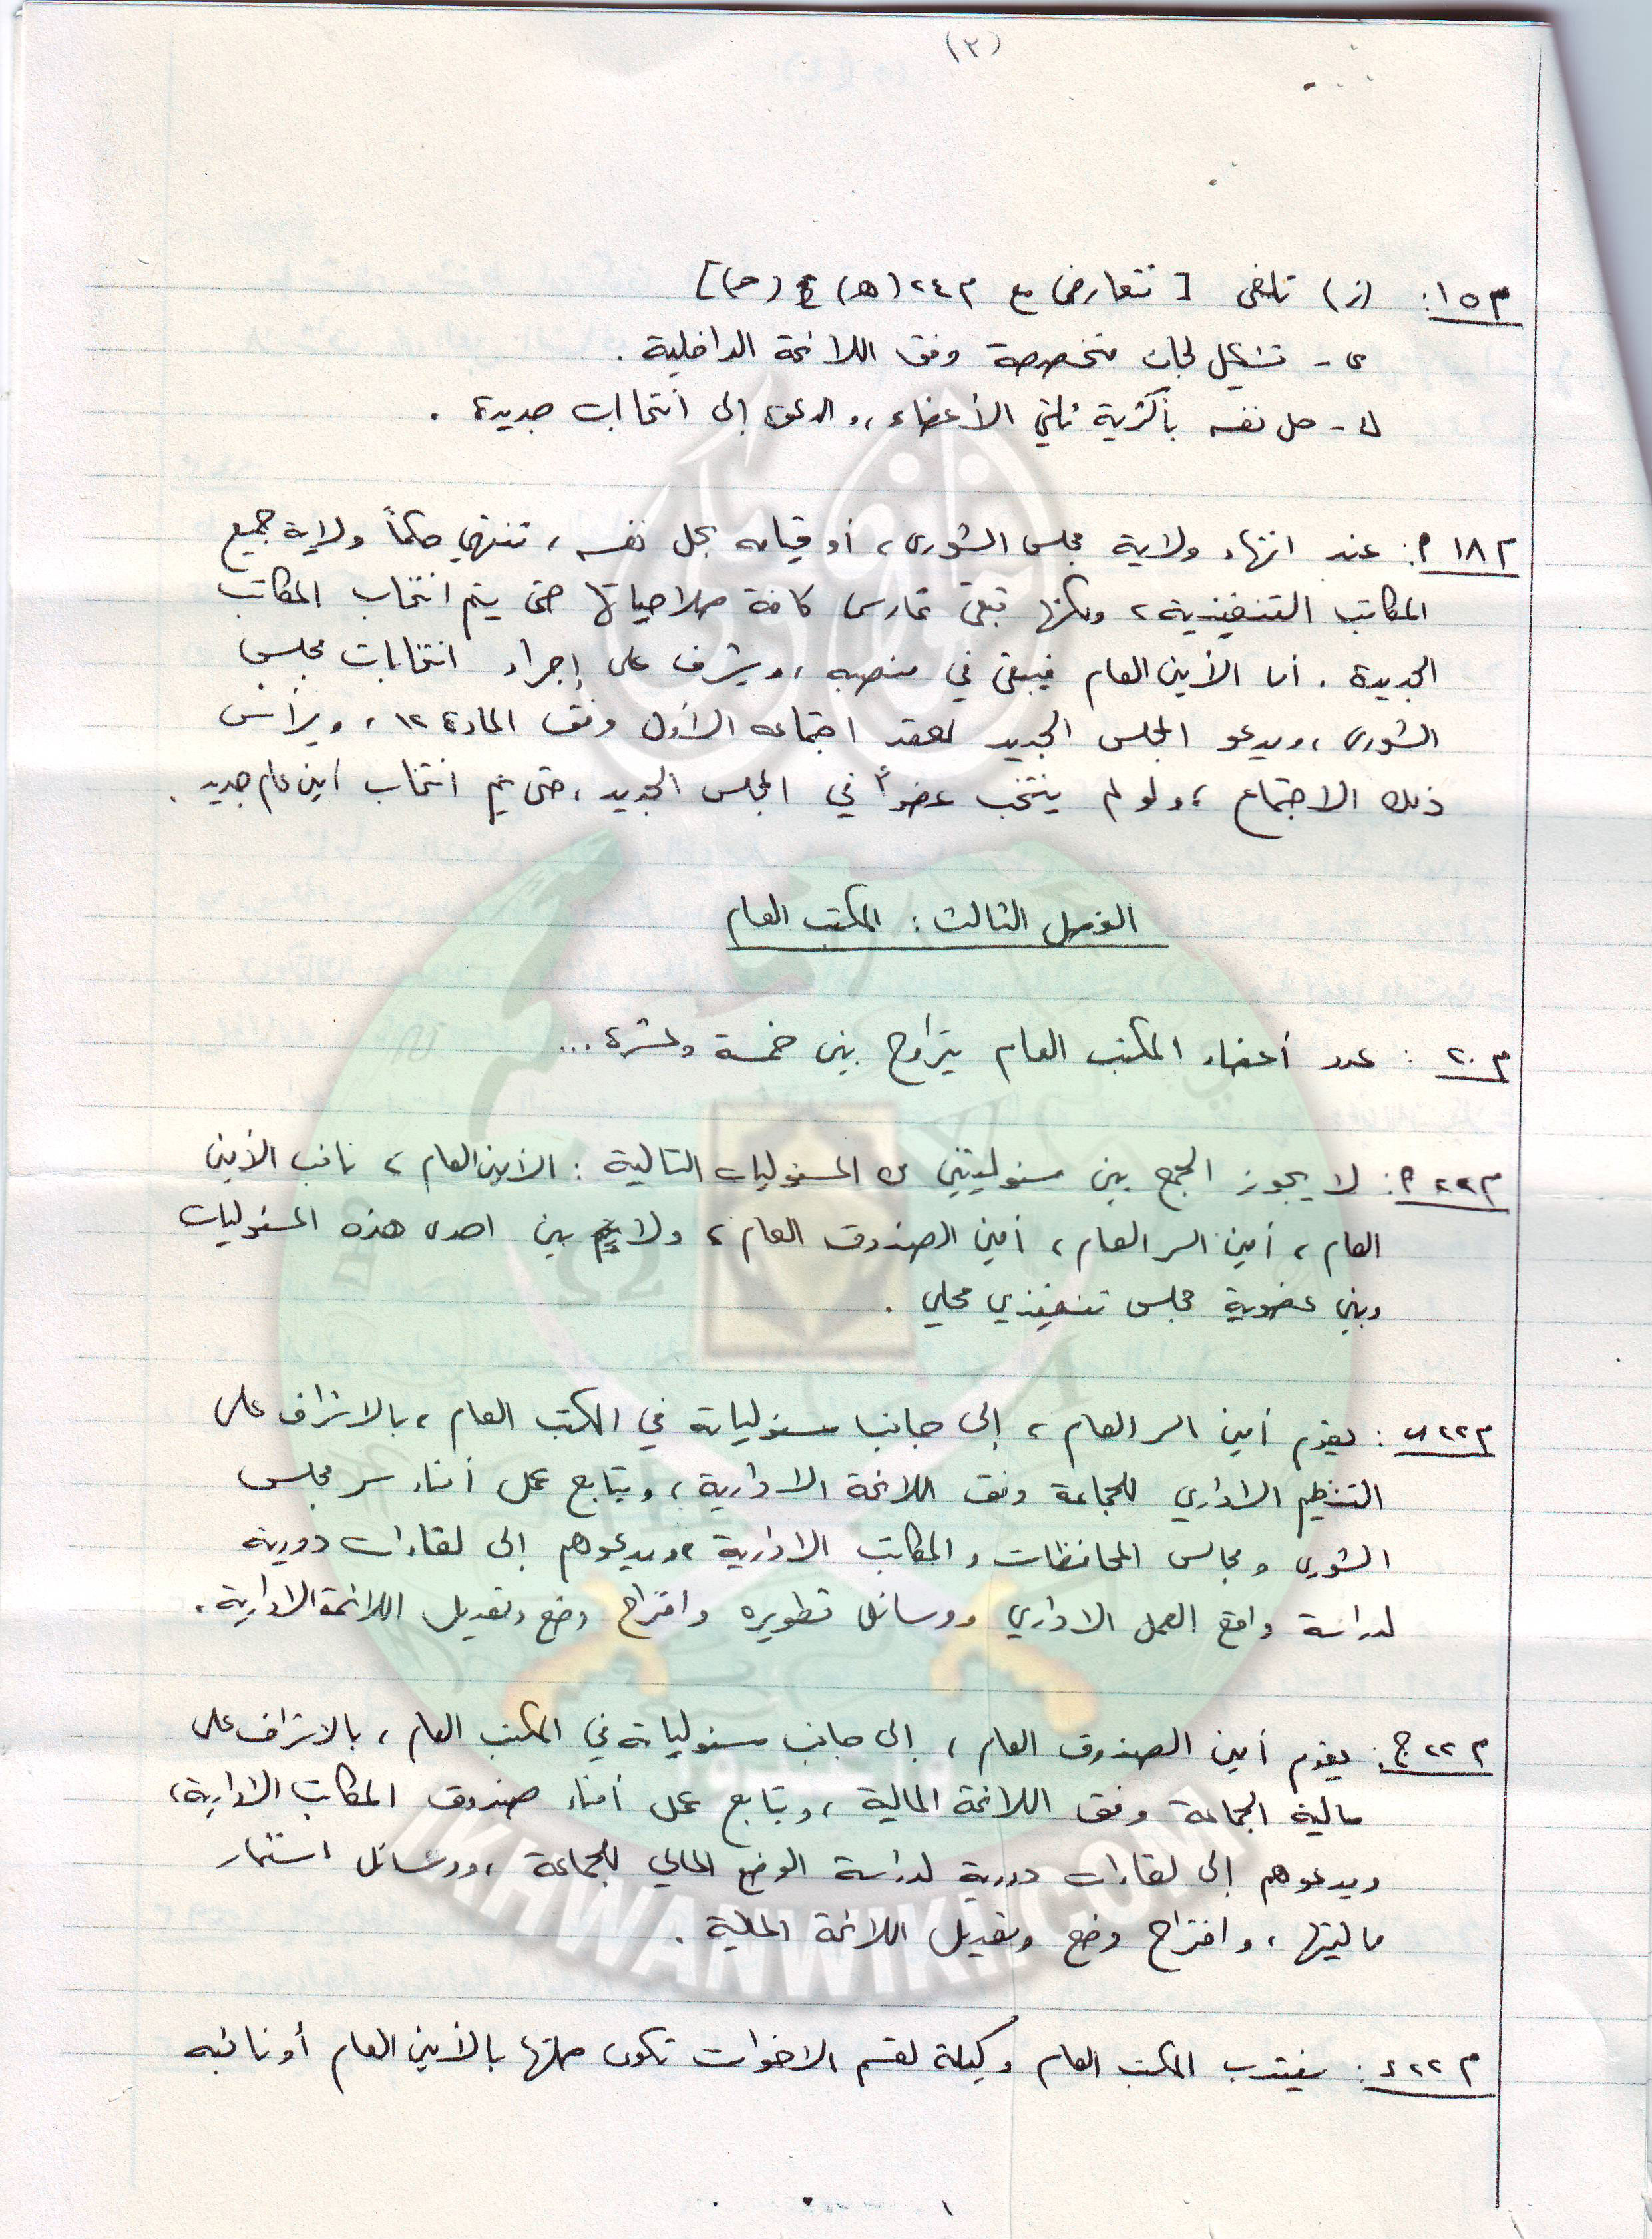 (٣)
م١٥: (ز) تلغى [تتعارض مع م٢٤ (ه) (ح)]
ى - تشكيل لجان متخصصة وفق اللائحة الداخلية .
ك - حل نفسه بأكثرية ثلثي الأعضاء ، والدعوة إلى انتخاب جديدة .
م١٨ م : عند انتهاء ولاية مجلس الشورى ، أو قيامه بحل نفسه ، تنتهي حكماً ولاية جميع
المكاتب التنفيذية ، ولكنها تبقى تمارس كافة صلاحياتها حتى يتم انتخاب المكاتب
الجديدة . أما الأمين العام فيبقى في منصبه ، ويشرف على إجراء انتخابات مجلس
الشورى ، ويدعو المجلس الجديد لعقد اجتماعه الأول وفق المادة ١٢ ، ويرأس
ذلك الاجتماع ، ولو لم ينتخب عضواً في المجلس الجديد ، حتى يتم انتخاب أمين عام جديد .
الفصل الثالث : المكتب العام
م٢٠ : عدد أعضاء المكتب العام يتراوح بين خمسة وعشرة ...
م٢٢ م : لا يجوز الجمع بين مسئوليتين من المسئوليات التالية : الأمين العام ، نائب الأمين
العام ، أمين السر العام ، أمين الصندوق العام ، ولا بين احدى هذه المسئوليات
وبين عضوية مجلس تنفيذي محلي .
م٢٢ ب : يقوم أمين السر العام ، إلى جانب مسئولياته في المكتب العام ، بالاشراف على
التنظيم الاداري للجماعة وفق اللائحة الادارية ، ويتابع عمل أمناء سر مجلس
الشورى ومجالس المحافظات والمكاتب الادارية ، ويدعوهم إلى لقاءات دورية
لدراسة واقع العمل الاداري ووسائل تطويره واقتراح وضع وتعديل اللائحة الادارية .
م٢٢ ج : يقوم أمين الصندوق العام ، إلى جانب مسئولياته في المكتب العام ، بالاشراف على
مالية الجماعة وفق اللائحة المالية ، ويتابع عمل أمناء صندوق المكاتب الادارية ،
ويدعوهم إلى لقاءات دورية لدراسة الوضع المالي للجماعة ، ووسائل استثمار
ماليتها ، واقتراح وضع وتعديل اللائحة المالية .
م٢٢ د : ينتدب المكتب العام وكيلة لقسم الاخوات تكون صلتها بالأمين العام أو نائبه
IKHWANWIKI.COM